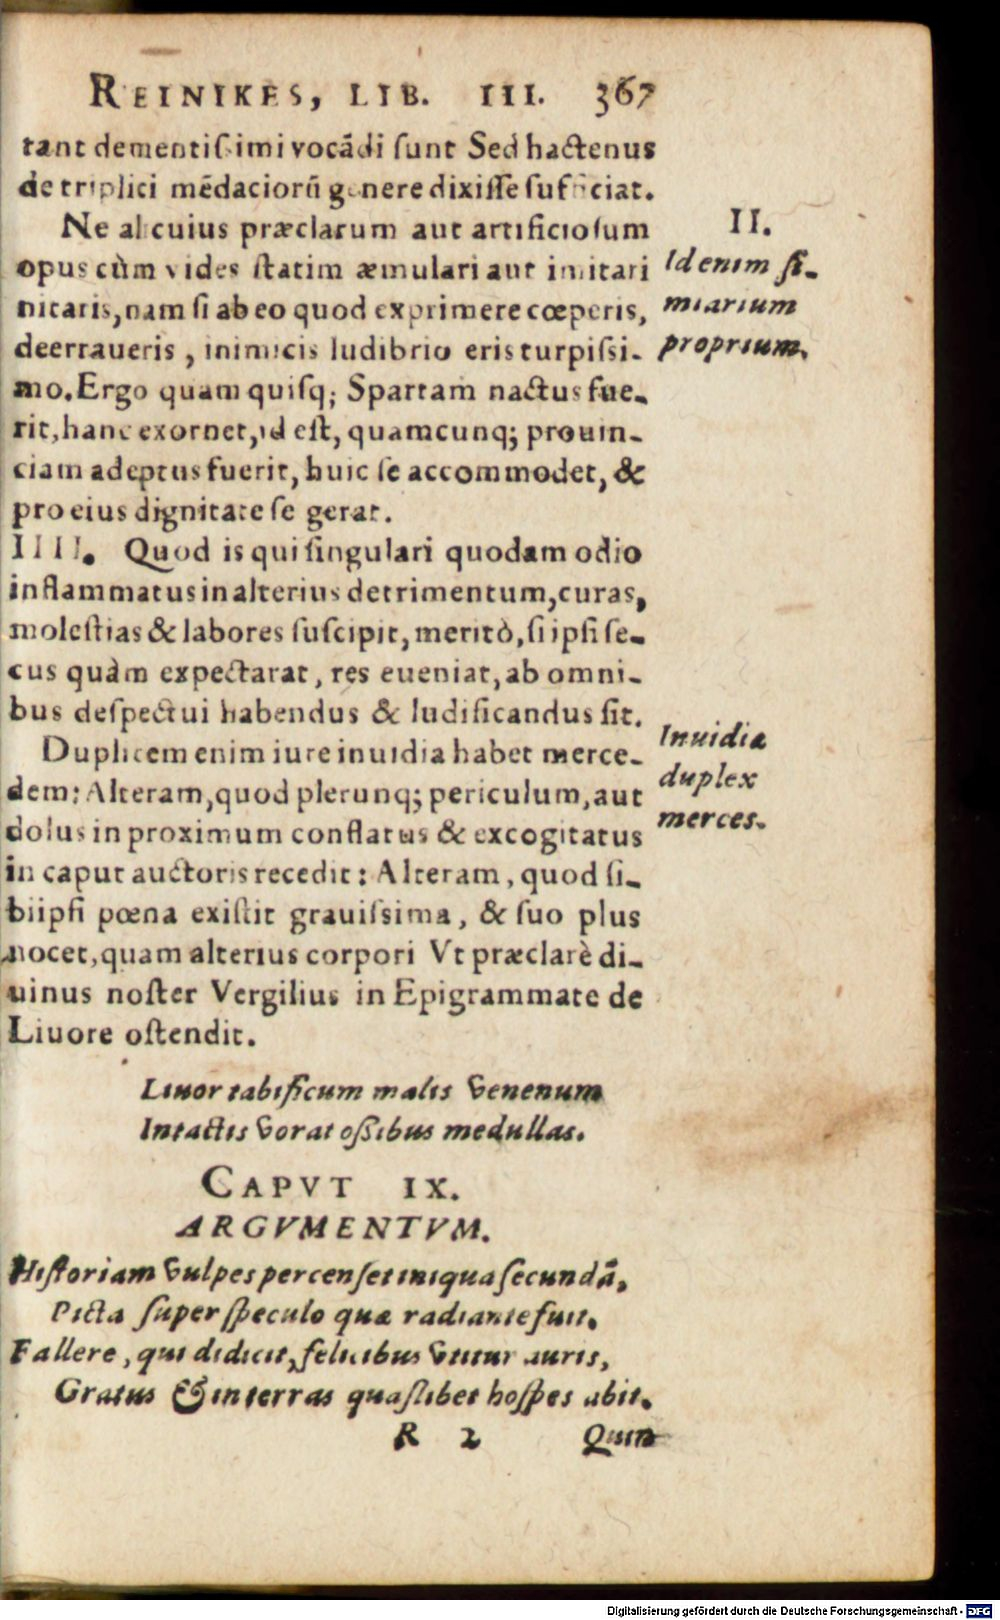 REINIKES, LIB. III. 367
tant dementiſsimi vocādi ſunt Sed hactenus
de triplici mēdaciorū genere dixiſſe ſufficiat.
Ne alicuius præclarum aut artificioſum
opus cùm vides ſtatim æmulari aut imitari
nitaris, nam ſi ab eo quod exprimere cœperis,
deerraueris, inimicis ludibrio eris turpiſsi-
mo. Ergo quam quiſq; Spartam nactus fue-
rit, hanc exornet, id eſt, quamcunq; prouin-
ciam adeptus fuerit, huic ſe accommodet, &
pro eius dignitate ſe gerat.
II.
Id enim ſi-
miarium
proprium.
IIII. Quod is qui ſingulari quodam odio
inflammatus in alterius detrimentum, curas,
moleſtias & labores ſuſcipit, meritò, ſi ipſi ſe-
cus quàm expectarat, res eueniat, ab omni-
bus deſpectui habendus & ludificandus ſit.
Duplicem enim iure inuidia habet merce-
dem: Alteram, quod plerunq; periculum, aut
dolus in proximum conflatus & excogitatus
in caput auctoris recedit: Alteram, quod ſi-
bi ipſi pœna exiſtit grauiſsima, & ſuo plus
nocet, quam alterius corpori Vt præclarè di-
uinus noſter Vergilius in Epigrammate de
Liuore oſtendit.
Inuidiæ
duplex
merces.
Liuor tabificum malis venenum
Intactis vorat oſsibus medullas.
CAPVT IX.
ARGVMENTVM.
Hiſtoriam vulpes percenſet iniqua ſecundā,
Picta ſuper ſpeculo quæ radiante fuit.
Fallere, qui didicit, felicibus vtitur auris,
Gratus & in terras quaſlibet hoſpes abit.
R 2 Quin
Digitalisierung gefördert durch die Deutsche Forschungsgemeinschaft - DFG